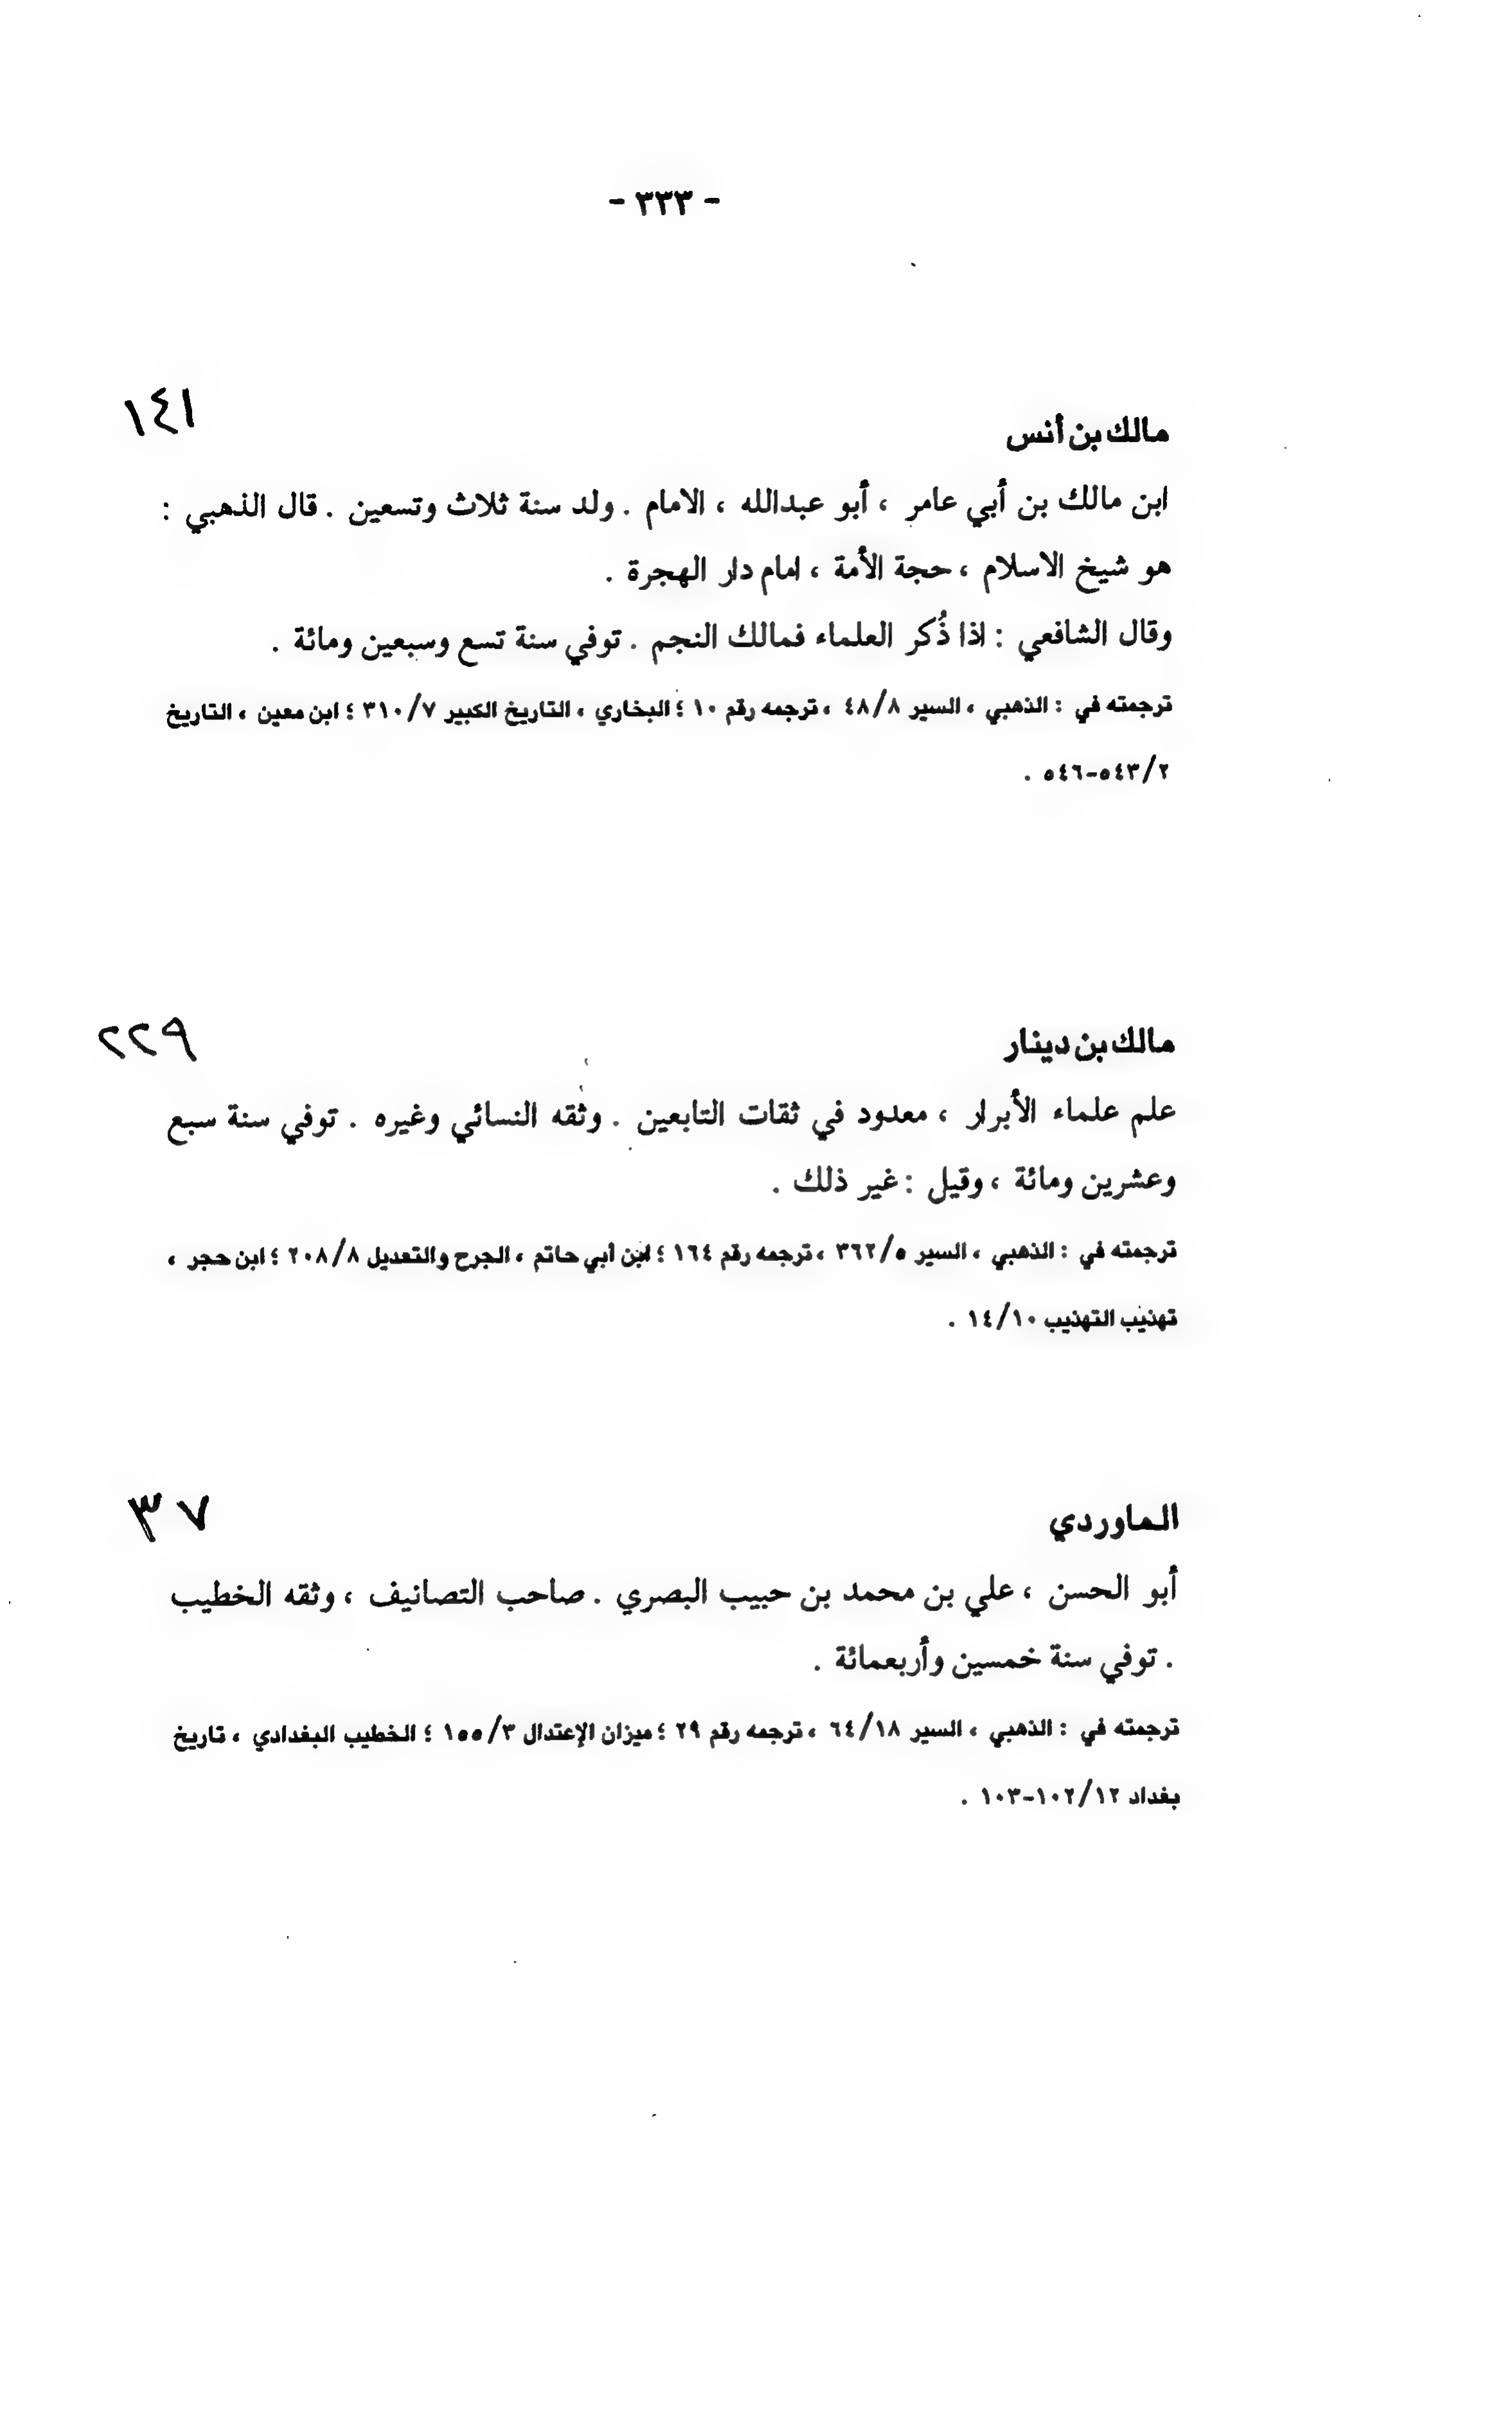 - ٣٣٣ -
مالك بن أنس ١٤١
ابن مالك بن أبي عامر ، أبو عبدالله ، الامام . ولد سنة ثلاث وتسعين . قال الذهبي :
هو شيخ الاسلام ، حجة الأمة ، امام دار الهجرة .
وقال الشافعي : اذا ذُكر العلماء فمالك النجم . توفي سنة تسع وسبعين ومائة .
ترجمته في : الذهبي ، السير ٤٨/٨ ، ترجمه رقم ١٠ ؛ البخاري ، التاريخ الكبير ٣١٠/٧ ؛ ابن معين ، التاريخ
٥٤٣/٢-٥٤٦ .
مالك بن دينار ٢٢٩
علم علماء الأبرار ، معدود في ثقات التابعين . وثقه النسائي وغيره . توفي سنة سبع
وعشرين ومائة ، وقيل : غير ذلك .
ترجمته في : الذهبي ، السير ٣٦٢/٥ ، ترجمه رقم ١٦٤ ؛ ابن أبي حاتم ، الجرح والتعديل ٢٠٨/٨ ؛ ابن حجر ،
تهذيب التهذيب ١٤/١٠ .
الماوردي ٣٧
أبو الحسن ، علي بن محمد بن حبيب البصري . صاحب التصانيف ، وثقه الخطيب
. توفي سنة خمسين وأربعمائة .
ترجمته في : الذهبي ، السير ٦٤/١٨ ، ترجمه رقم ٢٩ ؛ ميزان الإعتدال ١٥٥/٣ ؛ الخطيب البغدادي ، تاريخ
بغداد ١٠٢/١٢-١٠٣ .